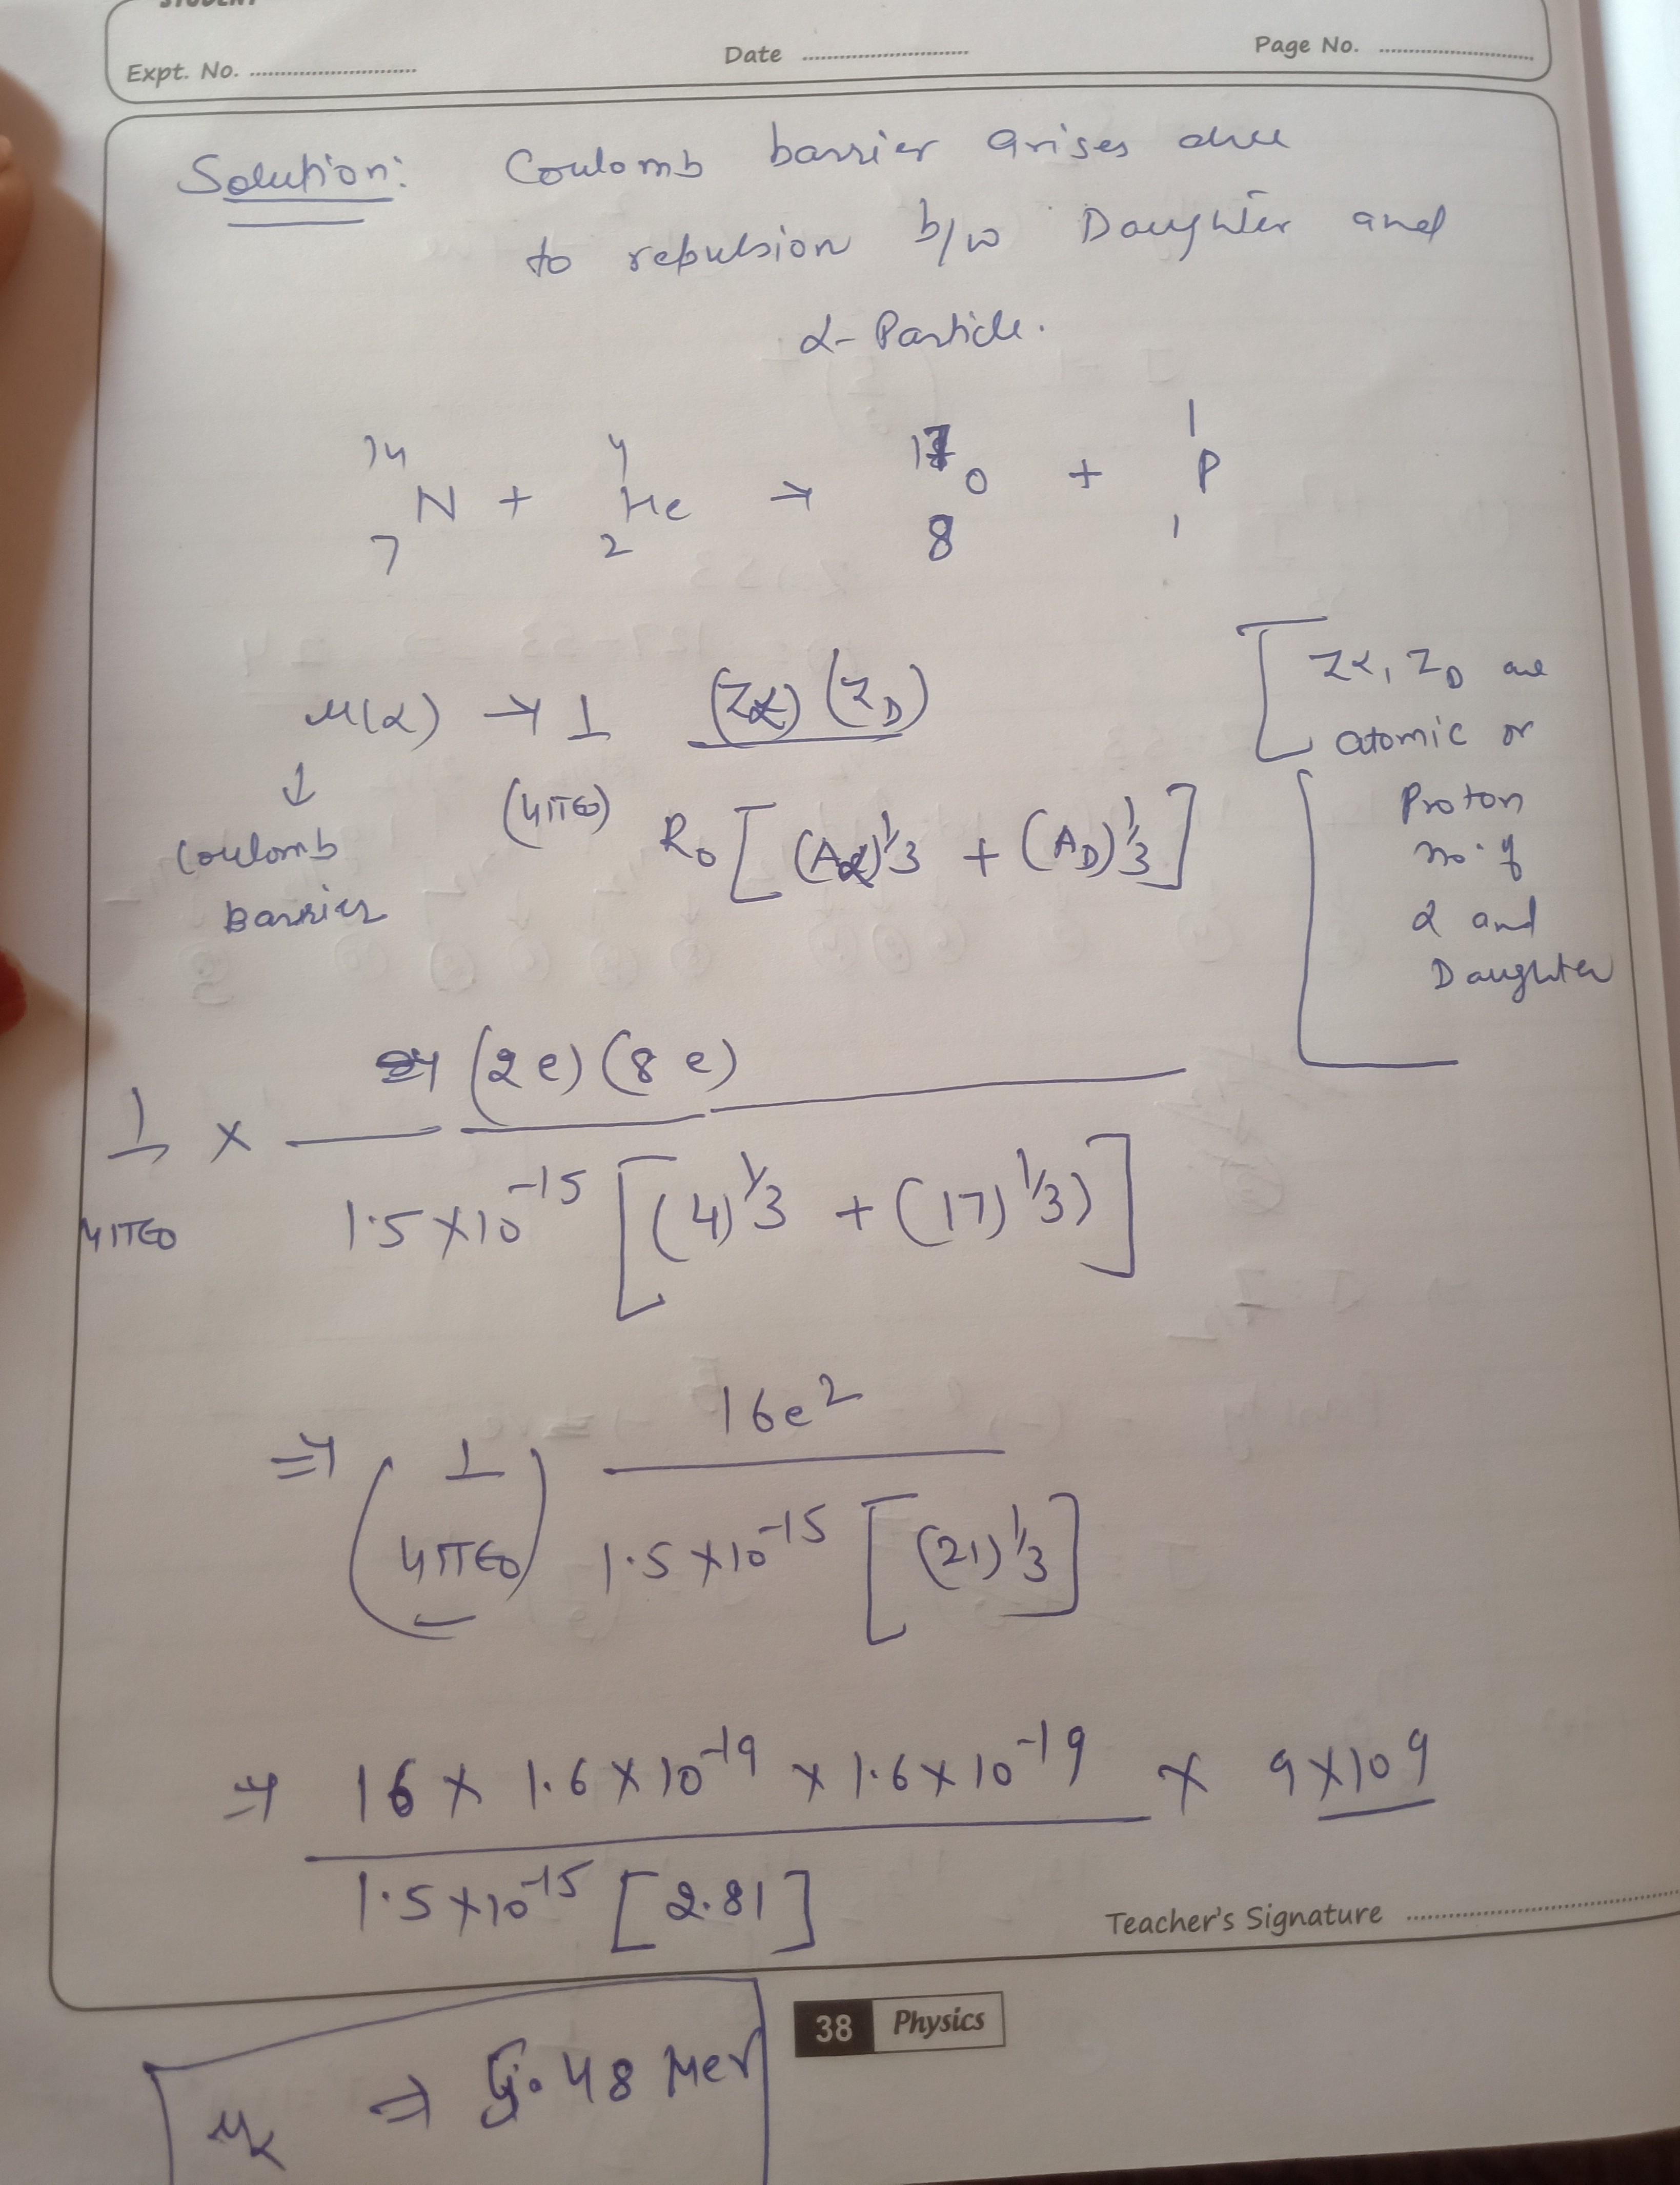 Expt. No.
Date
Page No.
Solution: Coulomb barrier arises due
to repulsion b/w Daughter and
α-Particle.
¹⁴₇N + ⁴₂He → ¹⁷₈O + ¹₁P
u(α) → 1/(4πε₀) (Zα)(Z_D) / R₀[(Aα)^1/3 + (A_D)^1/3]
↓
Coulomb
Barrier
[Zα, Z_D are
atomic or
Proton
no. of
α and
Daughter
1/4πε₀ × (2e)(8e) / 1.5×10⁻¹⁵ [(4)^1/3 + (17)^1/3)]
⇒ (1/4πε₀) 16e² / 1.5×10⁻¹⁵ [(21)^1/3]
⇒ 16 × 1.6×10⁻¹⁹ × 1.6×10⁻¹⁹ / 1.5×10⁻¹⁵ [2.81] × 9×10⁹
Teacher's Signature
38 Physics
⇒ .48 MeV